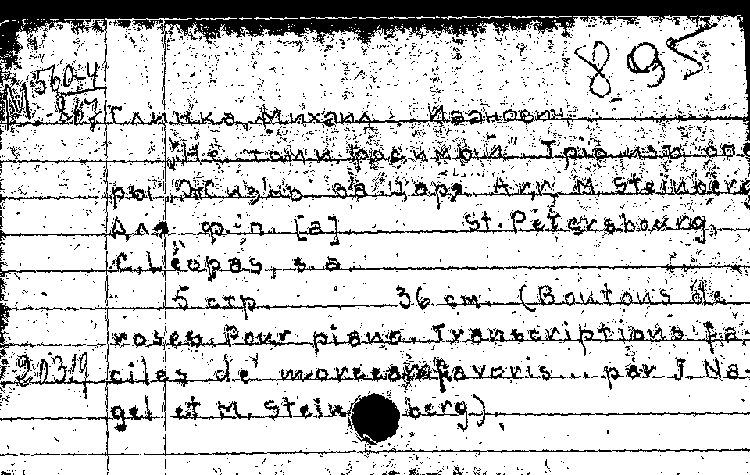 895
М560-4
-867
Глинка, Михаил Иванович
"Не томи родимый" Тріо изъ опе
ры "Жизнь за царя. Arr. M. Steinberg
Для ф.-п. [а] St. Pétersbourg,
C. Léopas, s. a.
5 стр. 36 cm. (Boutons de
roses. Pour piano. Transcriptions fa-
20319 ciles de morceaux favoris... par J. Na-
gel et M. Steinberg).